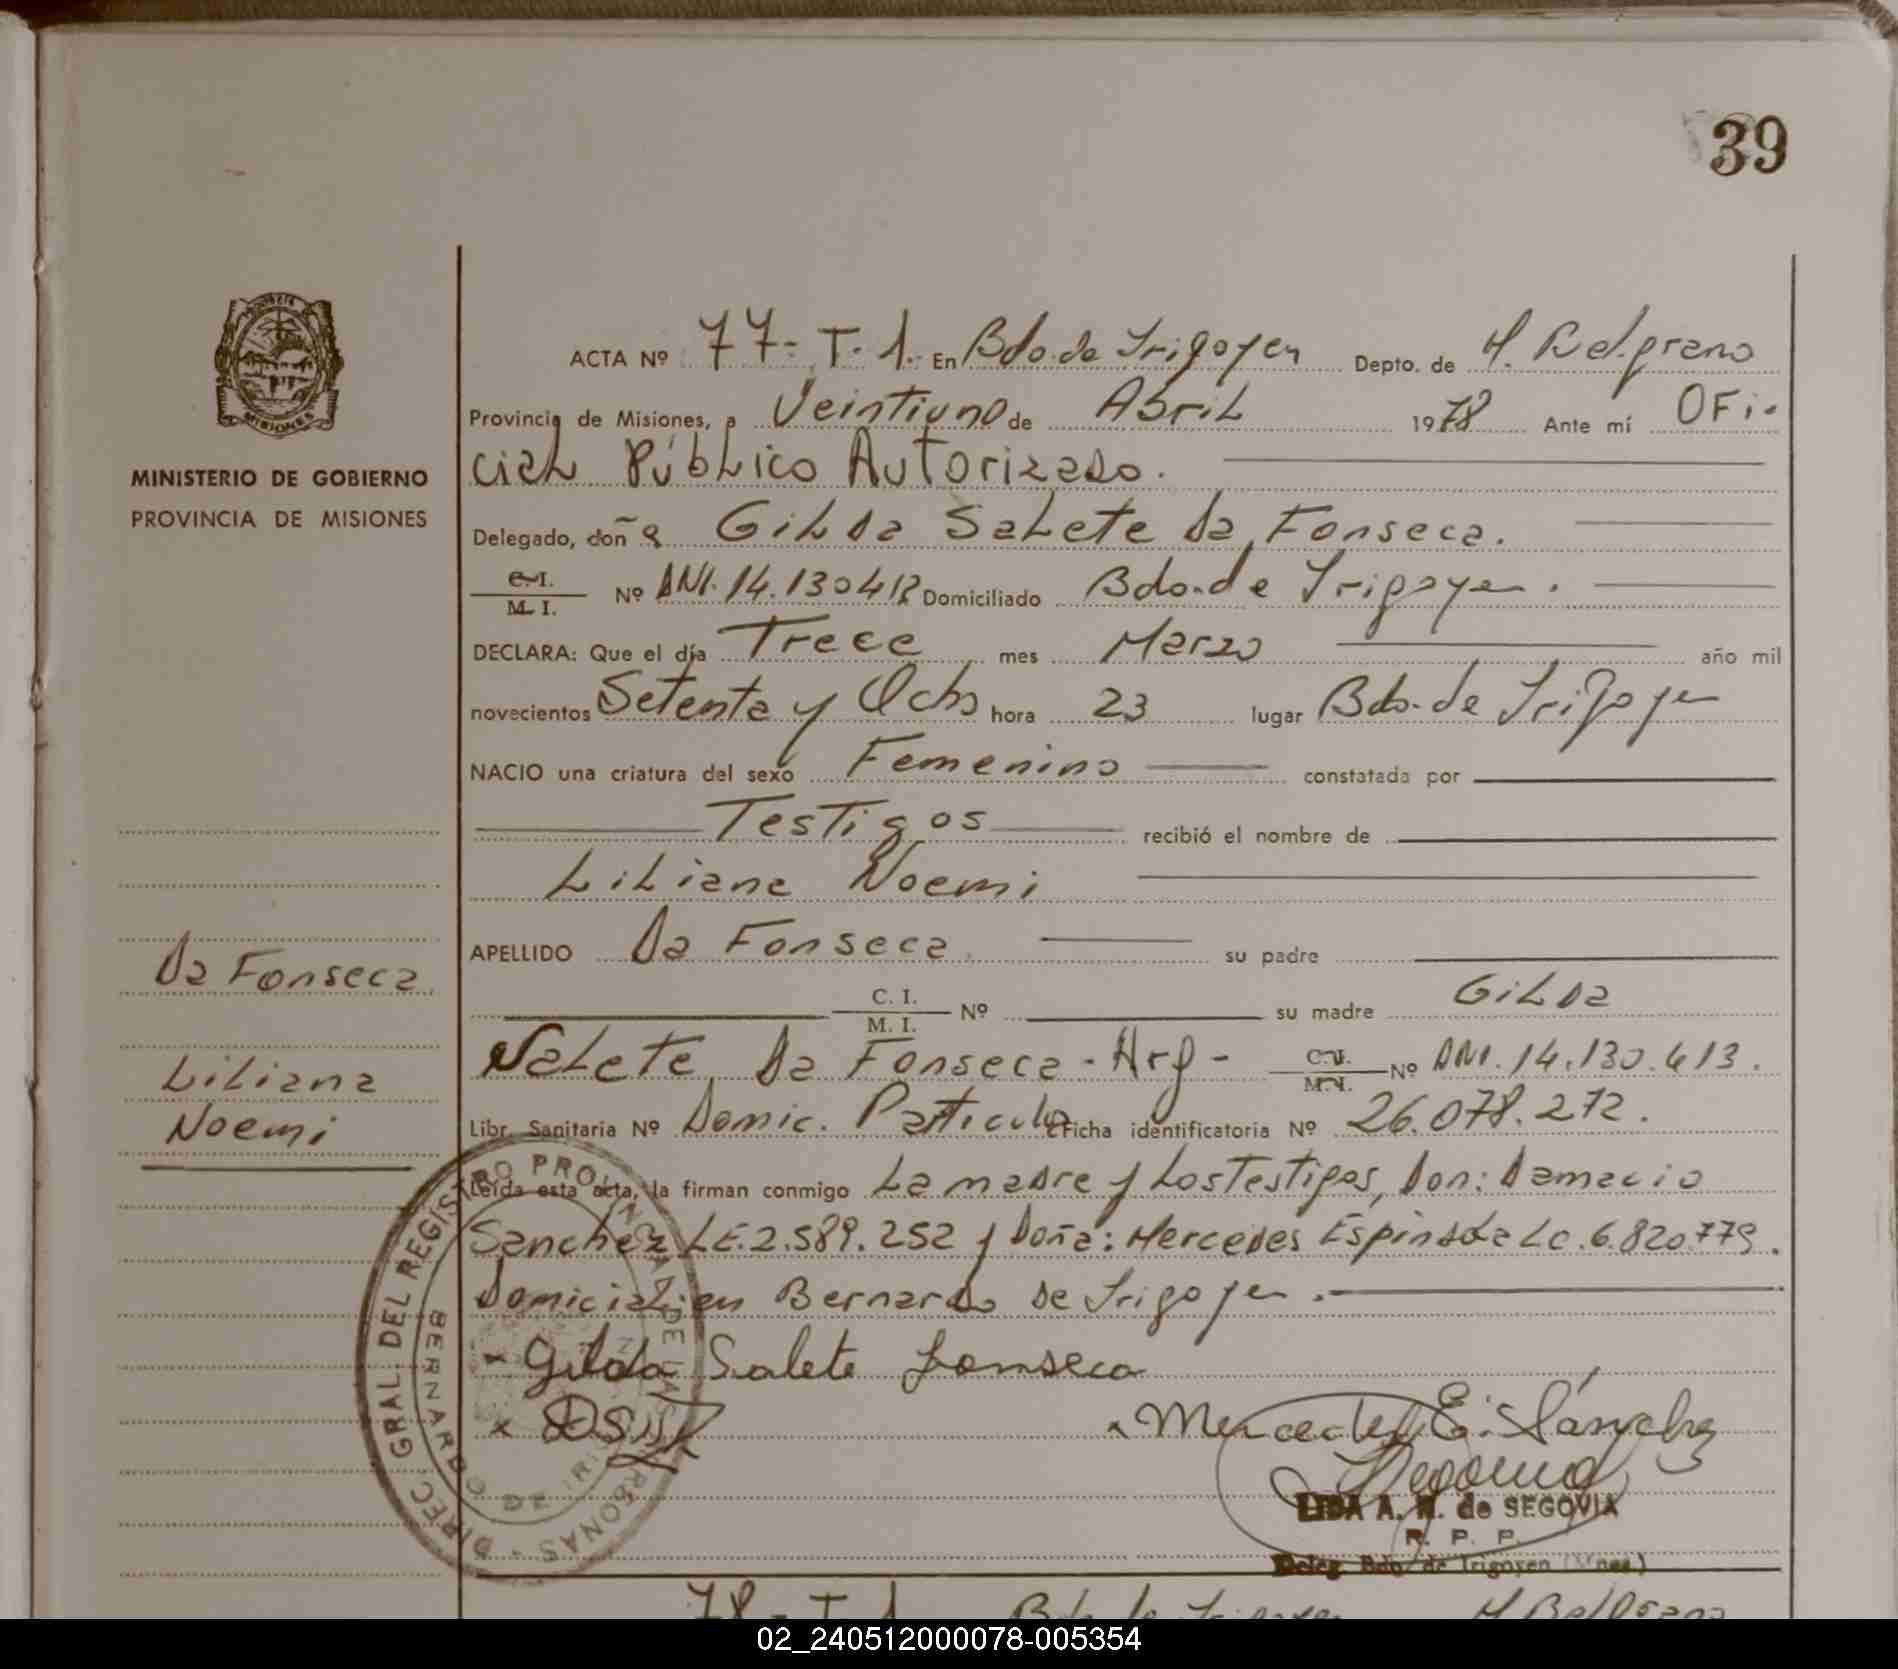 39
MISIONES
MINISTERIO DE GOBIERNO
PROVINCIA DE MISIONES
ACTA Nº 77- T. 1. En Bdo. de Irigoyen Depto. de M. Belgrano
Provincia de Misiones, a Veintiuno de Abril 1978 Ante mí OFi-
cial Público Autorizado.
Delegado, doña Gilda Salete Da Fonseca.
C. I. / M. I. Nº DNI. 14.130413 Domiciliado Bdo. de Irigoyen.
DECLARA: Que el día Trece mes Marzo año mil
novecientos Setenta y Ocho hora 23 lugar Bdo. de Irigoyen
NACIO una criatura del sexo Femenino constatada por
Testigos recibió el nombre de
Liliana Noemi
APELLIDO Da Fonseca su padre
C. I. / M. I. Nº su madre Gilda
Salete Da Fonseca - Arg - C. I. / M. I. Nº DNI. 14.130.413.
Libr. Sanitaria Nº Domic. Particular Ficha identificatoria Nº 26.078.272.
Leída esta acta, la firman conmigo La madre y Los Testigos, Don: Damacio
Sanchez LE. 2.589.252 y Doña: Mercedes Espindola LC. 6.820.779.
Domicial. en Bernardo de Irigoyen.
Da Fonseca
Liliana
Noemi
x Gilda Salete Fonseca
x
x Mercedes E. Sánchez
Segovia
LIDA A. N. de SEGOVIA
R. P. P.
Deleg. Bdo. de Irigoyen (Mnes.)
DIREC GRAL. DEL REGISTRO PROVINCIAL DE LAS PERSONAS
BERNARDO DE IRI
78 - T. 1 Bdo. de Irigoyen M. Belgrano
02_240512000078-005354